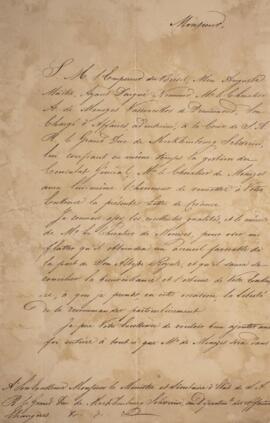 Monsieur,
S. M. l'Empereur du Brésil, Mon Auguste
Maître, Ayant Daigné Nommer Mr. le Chevalier
A. de Menezes Vasconcellos de Drummond, Son
Chargé d'Affaires à la Cour de S. A.
R. le Grand Duc de Mecklenbourg Schwerin,
lui confiant en même temps la gestion du
Consulat Général, Mr. le Chevalier de Menezes
aura lui-même l'honneur de remettre à Votre
Excellence la présente Lettre de Créance.
Je connais les qualités, et le
de Mr. le Chevalier de Menezes, pour oser me
flatter qu'il obtiendra un accueil favorable de
la part de Son Altesse Royale, et qu'il saura se
concilier la bienveillance et l'estime de Votre Excellence,
à qui je prends en cette occasion la liberté
de le recommander particulièrement.
Je prie Votre Excellence de vouloir bien ajouter une
foi entière à tout ce que Mr. de Menezes sera
A Son Excellence Monsieur le Ministre et Secrétaire d'Etat de S. A.
R. le Grand Duc de Mecklenbourg Schwerin, au Département des Affaires
Etrangères